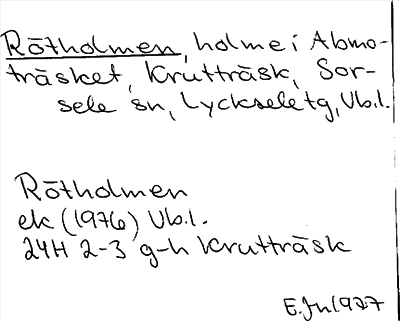 Rötholmen, holme i Abmo-
träsket, Krutträsk, Sor-
sele sn, Lycksele tg, Vb.l.
Rötholmen
ek (1976) Vb.l.
24H 2-3 g-h Krutträsk
E.Jn 1977